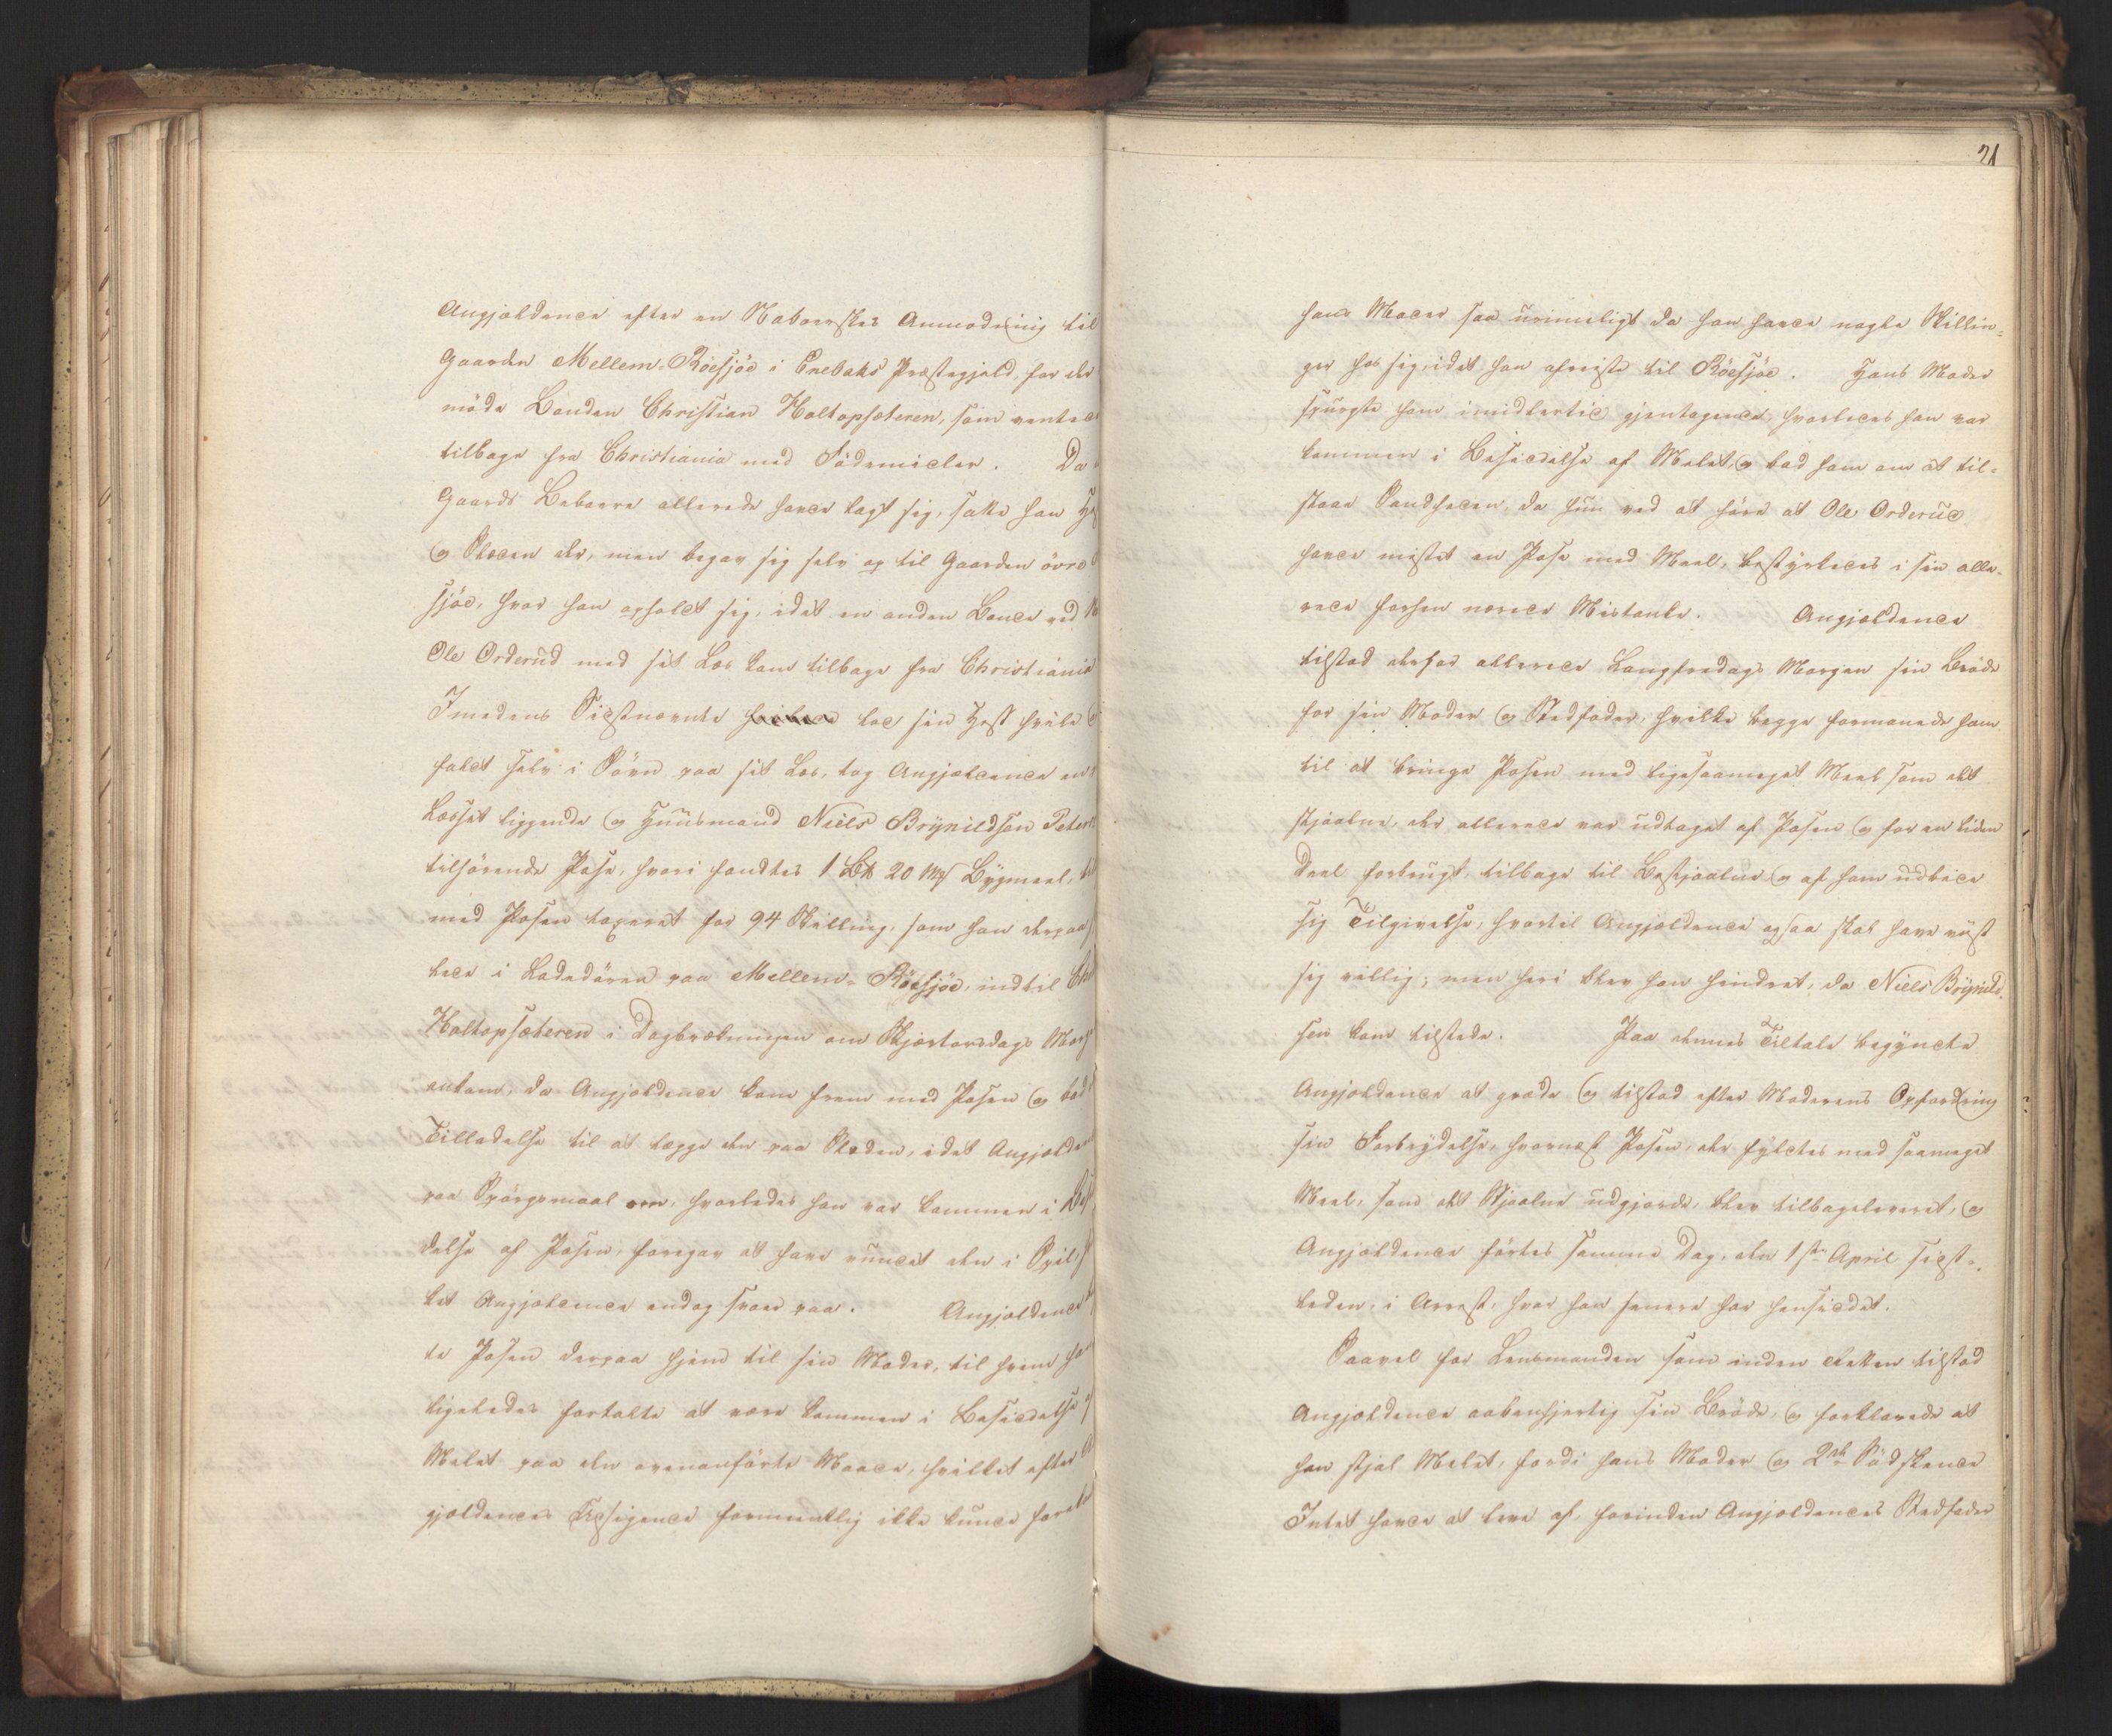 Angjældende efter en Naboerskes Anmodning til
Gaarden Mellem-Röesjöe i Enebaks Præstegjeld, for der
möde Bonden Christian Holtopsæteren, som ventedes
tilbage fra Christiania med Födemidler. Da
Gaards Beboere allerede havde lagt sig, satte han
og Slæden der, men begav sig selv op til Gaarden övre
sjöe, hvor han opholdt sig, idet en anden Bonde ved
Ole Orderud med sit Læs kom tilbage fra Christiania
Imedens Sidstnævnte lod sin Hest hvile
faldt selv i Sövn paa sit Læs, tog Angjældende en
Læsset liggende og Huusmand Niels Brynildsen
tilhörende Pose, hvori fandtes 1 Lb 20 Mk Bygmeel,
med Posen taxeret for 94 Skilling, som han derpaa
lede i Ladedören paa Mellem-Röesjöe, indtil
Holtopsæteren i Dagbrækningen om Skjærtorsdags
ankom, da Angjældende kom frem med Posen og bad
Tilladelse til at lægge den paa Slæden, idet
paa Spörgsmaal om, hvorledes han var kommen i
delse af Posen, foregav at have fundet den i
ket Angjældende endog svor paa. Angjældende
te Posen derpaa hjem til sin Moder, til hvem
ligeledes fortalte at være kommen i Besiddelse
Melet paa den ovenanförte Maade, hvilket efter
gjældendes Udsigende formeentlig ikke kunde
21
hans Moder saa urimeligt da han havde nogle Skillin-
ger hos sig, idet han afreiste til Röesjöe. Hans Moder
spurgte ham imidlertid gjentagende, hvorledes han var
kommen i Besiddelse af Melet, og bad ham om at til-
staae Sandheden, da hun ved at höre at Ole Orderud
havde mistet en Pose med Meel, bestyrkedes i sin alle-
rede forhen nærede Mistanke. Angjældende
tilstod derfor allerede Langfredags Morgen sin Bröde
for sin Moder og Stedfader, hvilke begge formanede ham
til at bringe Posen med ligesaameget Meel som det
stjaalne, der allerede var udtaget af Posen og for en liden
Deel forbrugt, tilbage til Bestjaalne og af ham udbede
sig Tilgivelse, hvortil Angjældende ogsaa skal have viist
sig villig; men heri blev han hindret, da Niels Brynild-
sen kom tilstede. Paa dennes Tiltale begyndte
Angjældende at græde og tilstod efter Moderens Opfordring
sin Forbrydelse, hvornæst Posen, der fyldtes med saameget
Meel, som det Stjaalne udgjorde, blev tilbageleveret, og
Angjældende förtes samme Dag, den 1ste April sidst-
leden, i Arrest, hvor han senere har hensiddet.
Saavel for Lensmanden som inden Retten tilstod
Angjældende aabenhjertig sin Bröde, og forklarede at
han stjal Melet, fordi hans Moder og 2de Södskende
Intet havde at leve af, forinden Angjældendes Stedfader